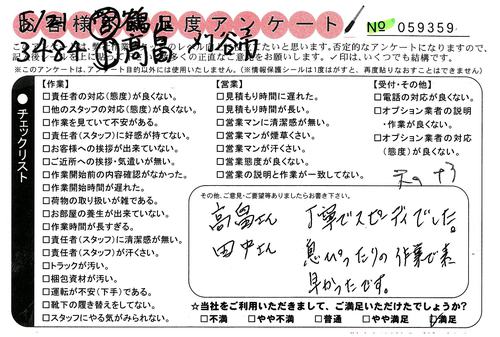 お客様満足度アンケート
No 059359
5/21 営 鶴
3484 高畠 刈谷南
※このアンケートは、アンケート目的以外には使用いたしません。(※情報保護シールは1度はがすと、再度貼りなおすことはできません)
チェックリスト
【作業】
□責任者の対応(態度)が良くない。
□他のスタッフの対応(態度)が良くない。
□作業を見ていて不安がある。
□責任者(スタッフ)に好感が持てない。
□お客様への挨拶が出来ていない。
□ご近所への挨拶・気遣いが無い。
□作業開始前の内容確認がなかった。
□作業開始時間が遅れた。
□荷物の取り扱いが雑である。
□お部屋の養生が出来ていない。
□作業時間が長すぎる。
□責任者(スタッフ)に清潔感が無い。
□責任者(スタッフ)が汗くさい。
□トラックが汚い。
□梱包資材が汚い。
□運転が不安(下手)である。
□靴下の履き替えをしてない。
□スタッフにやる気がみられない。
【営業】
□見積もり時間に遅れた。
□見積もり時間が長い。
□営業マンに清潔感が無い。
□営業マンが煙草くさい。
□営業マンが汗くさい。
□営業態度が良くない。
□営業の説明と作業が一致してない。
【受付・その他】
□電話の対応が良くない。
□オプション業者の説明
・作業が良くない。
□オプション業者の対応
(態度)が良くない。
その他、ご意見・ご要望等ありましたらお書き下さい。
高畠さん 丁寧でスピーディでした。
田中さん 息ぴったりの作業で素
早かったです。
☆当社をご利用いただきまして、ご満足いただけたでしょうか?
□不満 □やや不満 □普通 □やや満足 □満足